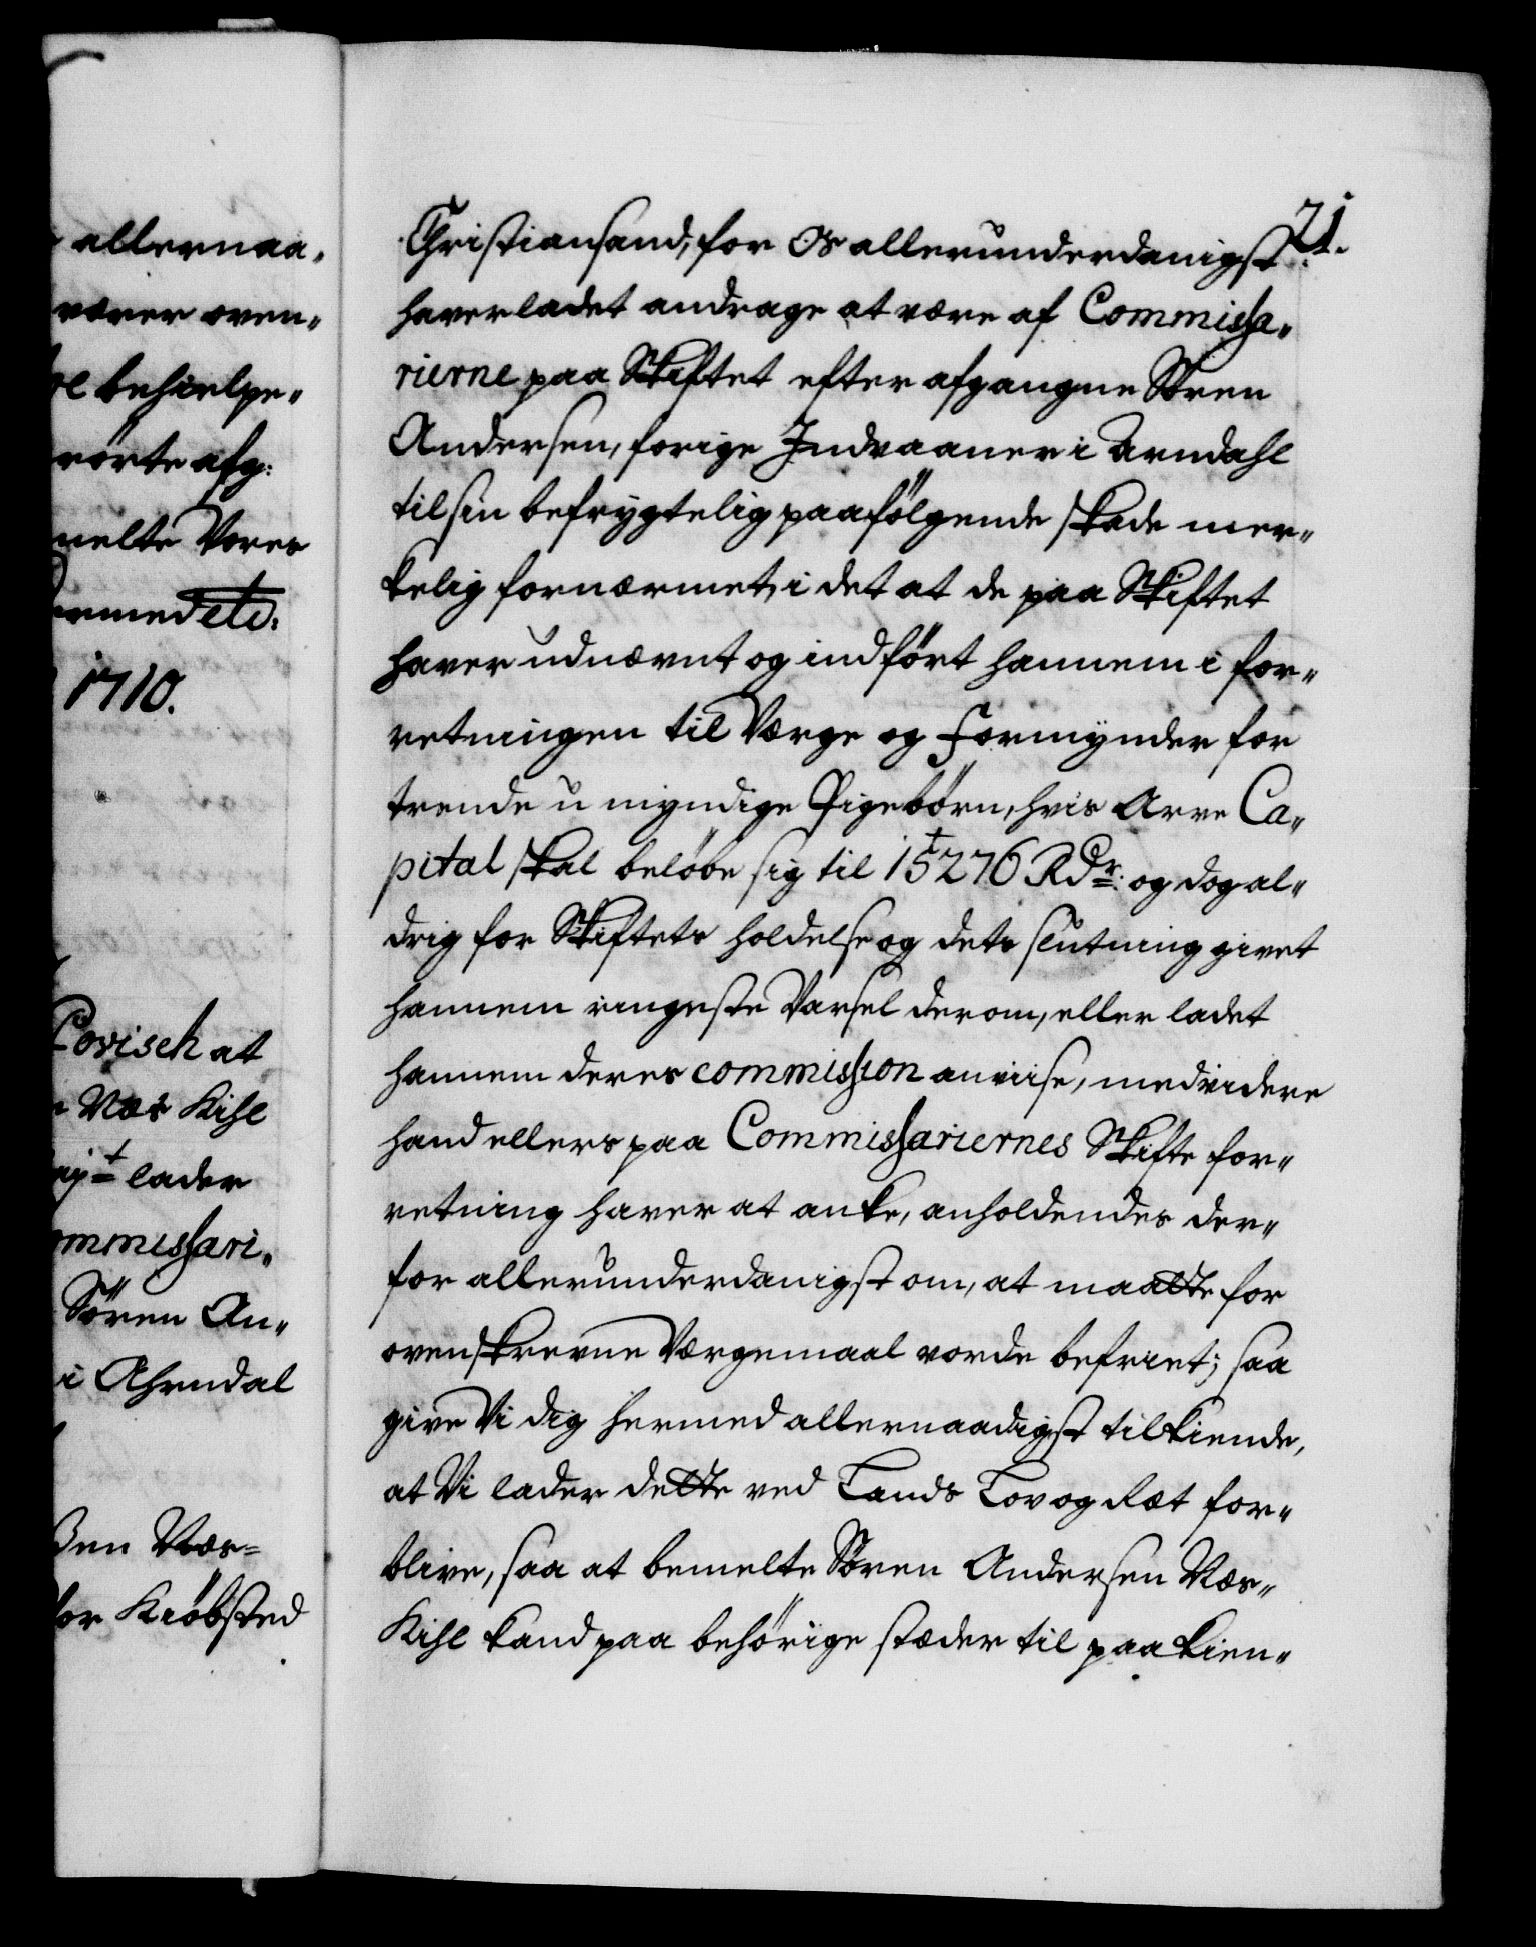 allernaa„
værer oven„
behielpe„
rörte afg:
melte Vores
ermed etc:
1710.
Lovisch at
Næs Kihl
lader
ommissari„
Sören An„
i Ahrndal
Næs=
for Kiöbsted
21.
Christiansand, for Os allerunderdanigst
haver ladet andrage at være af Commissa„
rierne paa Skiftet efter afgangne Sören
Andersen, forige Indvaaner i Arndahl
til sin befrygtelig paafölgende skade mer„
kelig fornærmet, i det at de paa Skiftet
haver udnævnt og indfört hannem i for„
retningen til Værge og Formynder for
trende u myndige Pigebörn, hvis Arve Ca„
pital skal belöbe sig til 15276 Rdr: og dog al„
drig for Skiftets holdelse og dets slutning givet
hannem ringeste Varsel derom, eller ladet
hannem deres commission anviise, med videre
hand ellers paa Commissariernes Skifte for„
retning haver at anke, anholdendes der„
for allerunderdanigst om, at maatte for
ovenskrevne Værgemaal vorde befriet; saa
give Vi dig hermed allernaadigst tilkiende,
at Vi lader dette ved Lands Lov og Ræt for„
blive, saa at bemelte Sören Andersen Næs„
Kihl kand paa behörige stæder til paa kien„